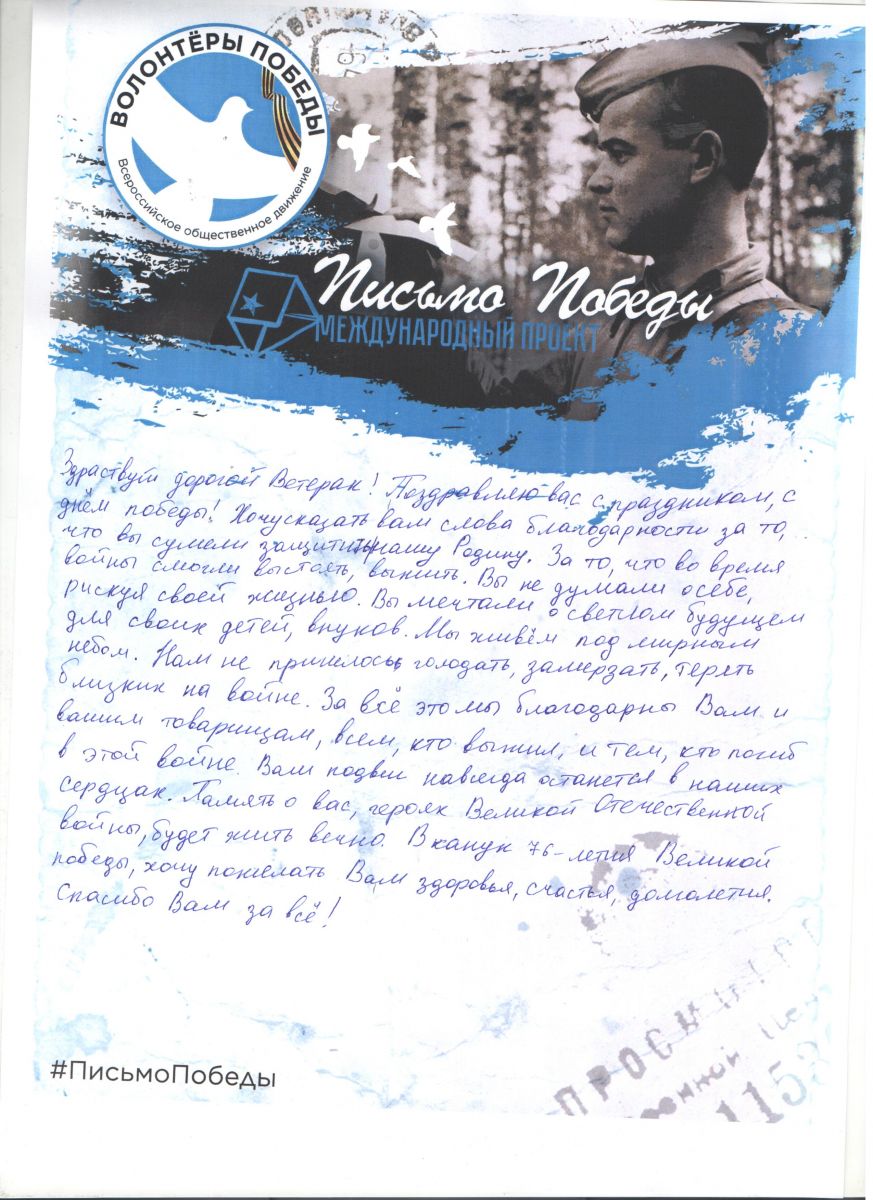 ВОЛОНТЁРЫ ПОБЕДЫ
Всероссийское общественное движение
Письмо Победы
МЕЖДУНАРОДНЫЙ ПРОЕКТ
Здраствуй дорогой Ветеран! Поздравляю вас с праздником, с
днём победы! Хочу сказать вам слова благодарности за то,
что вы сумели защитить нашу Родину. За то, что во время
войны смогли выстоять, выжить. Вы не думали о себе,
рискуя своей жизнью. Вы мечтали о светлом будущем
для своих детей, внуков. Мы живём под мирным
небом. Нам не пришлось голодать, замерзать, терять
близких на войне. За всё это мы благодарны Вам и
вашим товарищам, всем, кто выжил, и тем, кто погиб
в этой войне. Ваш подвиг навсегда останется в наших
сердцах. Память о вас, героях Великой Отечественной
войны, будет жить вечно. В канун 76-летия Великой
победы, хочу пожелать Вам здоровья, счастья, долголетия.
Спасибо Вам за всё!
#ПисьмоПобеды
ПРОСМ
1153